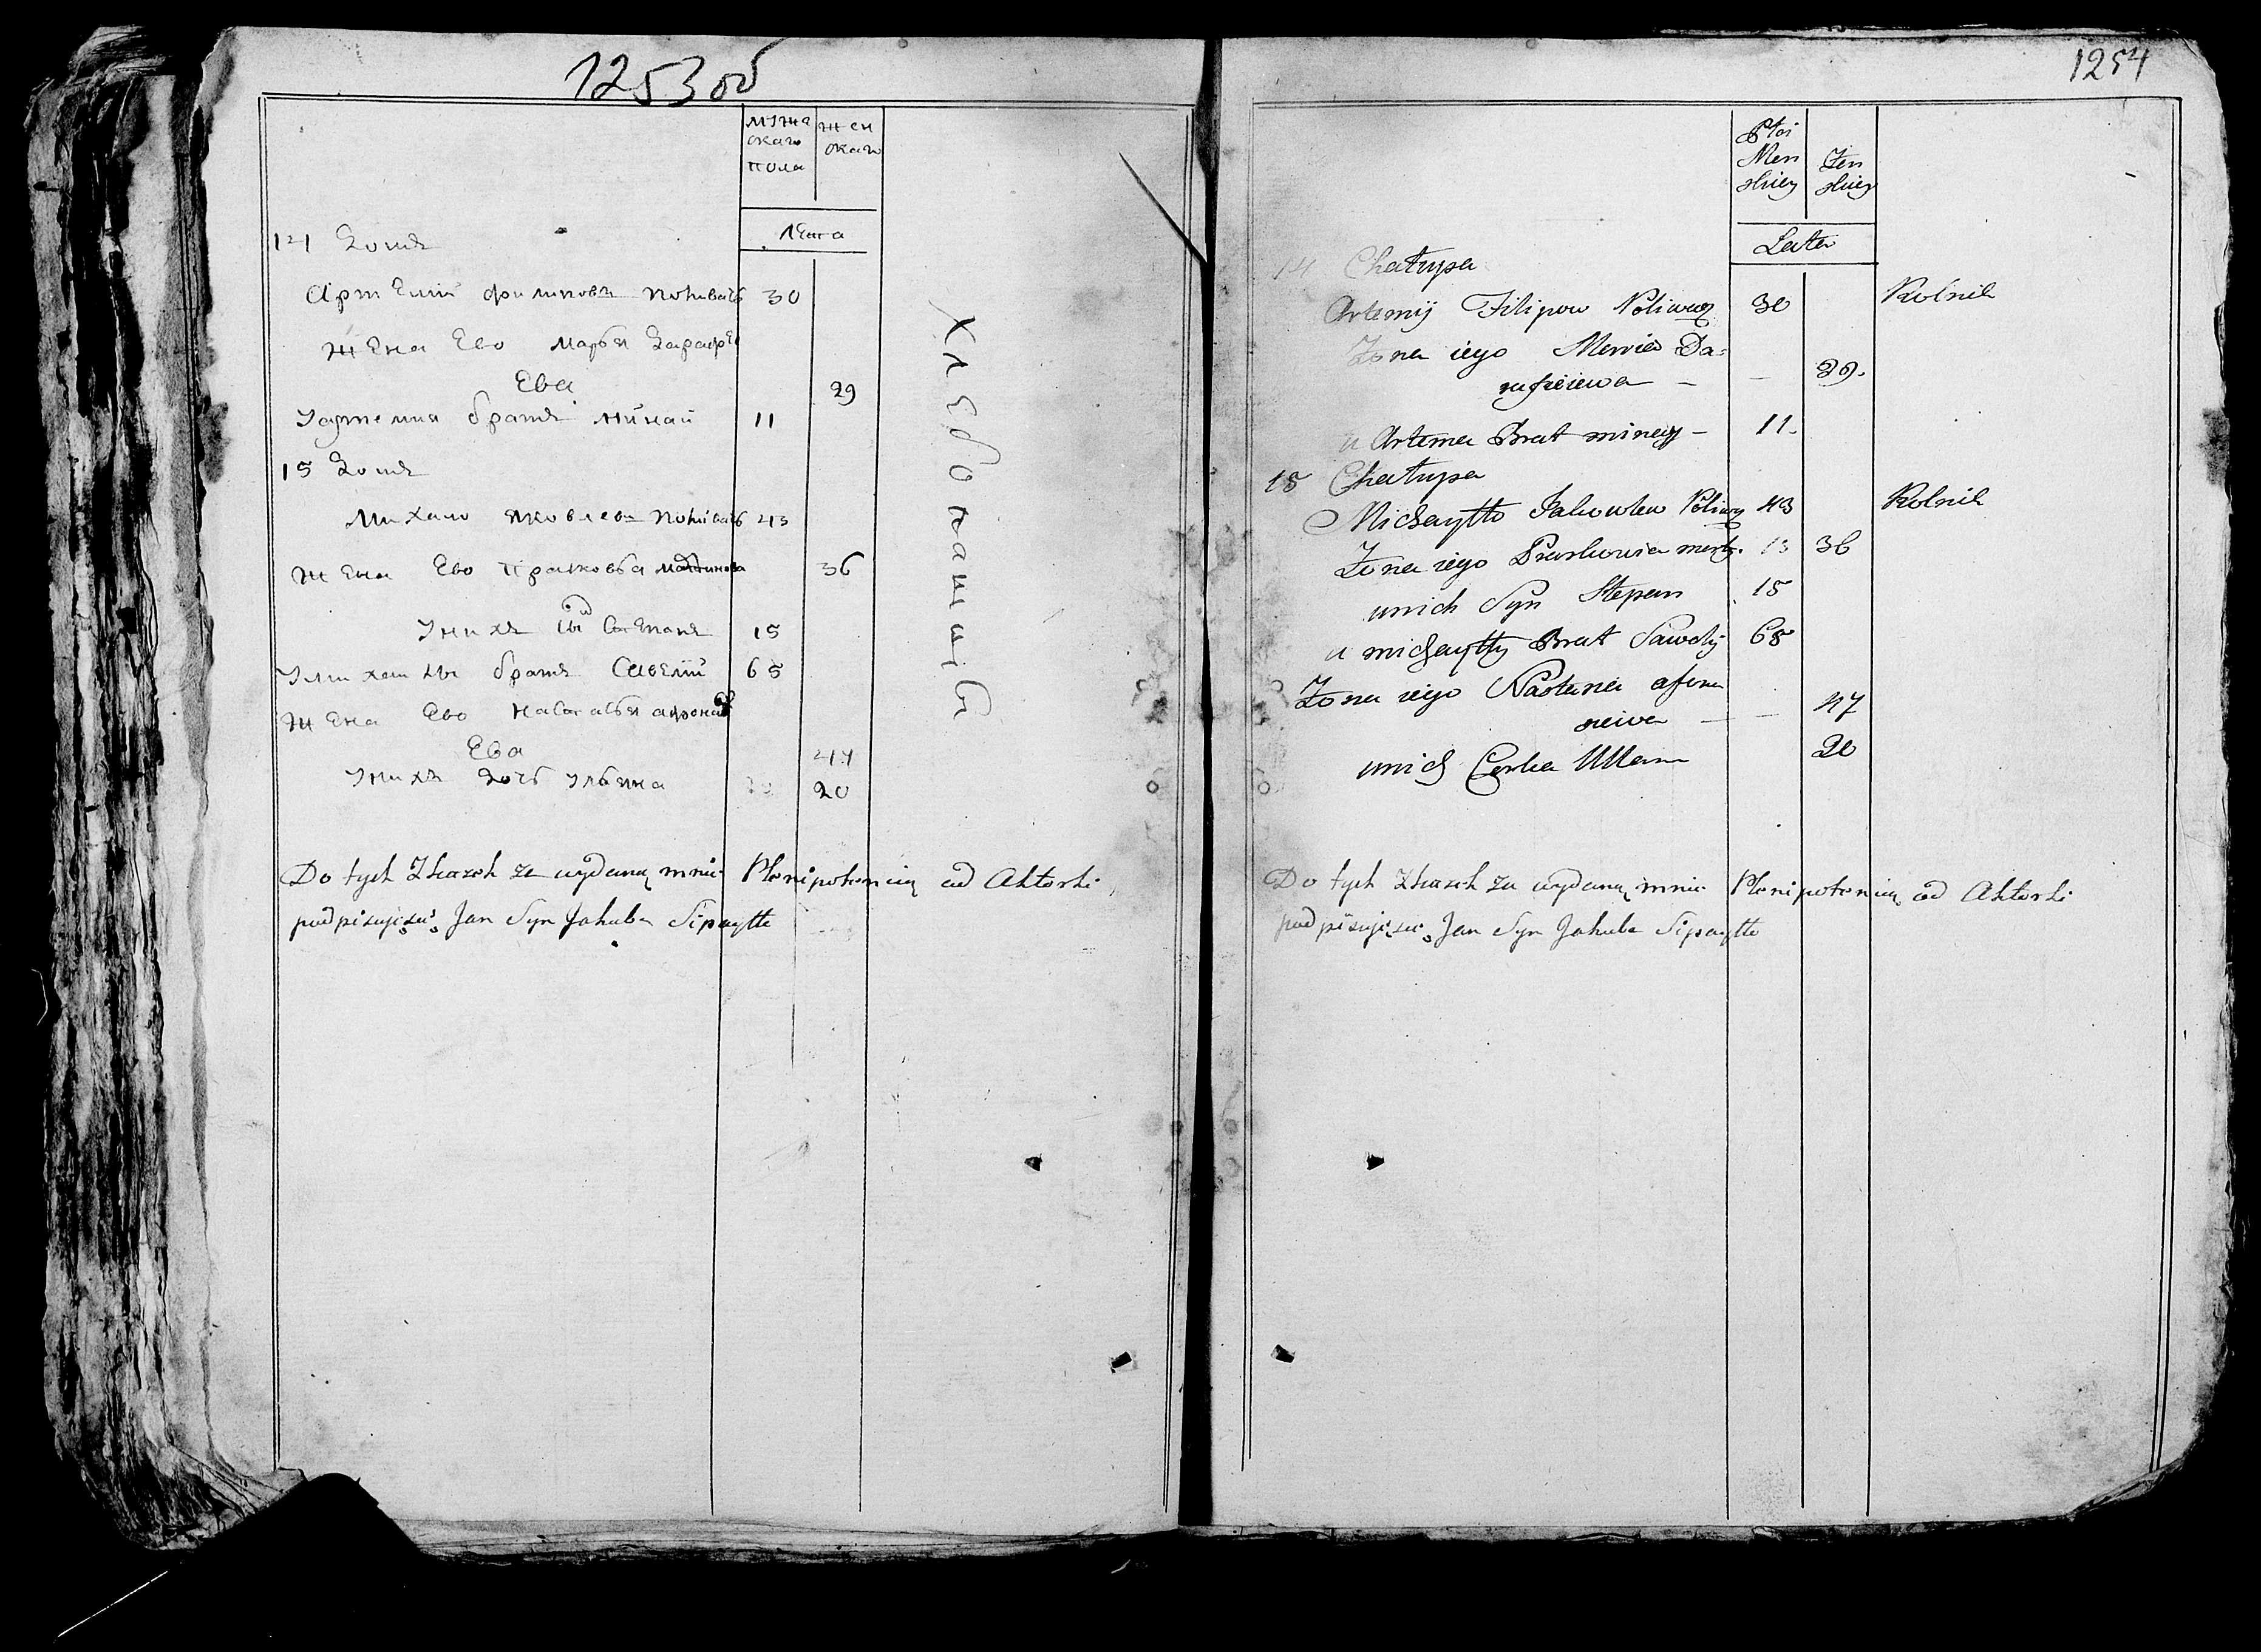 1253об
мужа
скаго
пола
жен
скаго
лета
14 Домъ
Артемий Филиповъ Поливачь 30
Жена Ево Марья Дарафѣ
Ева 29
Уартемия братъ Минай 11
15 Домъ
Михало Яковлевъ Поливачь 43
Жена Ево Прасковья Мартинова 36
Унихъ сы Степанъ 15
Умихалы братъ Савелий 65
Жена Ево Настасья афона
Ева 47
Унихъ дочь Ульяна 20
Хлебопашцы
Do tych Skazek za wydaną mnie Plenipotencią od Aktorki
podpisuję się Jan Syn Jakuba Sipayłło
1254
Płci
Męs
skiey
Żen
skiey
Lata
14 Chałupa
Artemij Filipow Poliwacz 30 Rolnik
Żona iego Maria Da=
rufieiewa — — 29.
u Artema Brat minay — 11.
15 Chałupa
Michayłło Jakowlew Poliwacz 43 Rolnik
Żona iego Praskowia mart. 13 36
unich Syn Stepan 15
u michayłły Brat Sawely 65
Żona iego Nastazia afona
neiwa — — 47
unich Corka Ullana 20
Do tych Skazek za wydaną mnie Plenipotencią od Aktorki
podpisuję się Jan Syn Jakuba Sipayłło